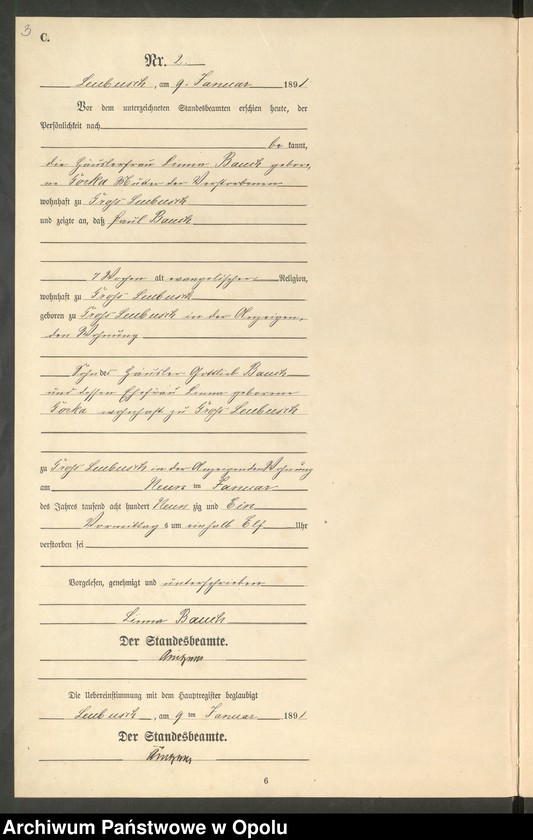 3
C.
Nr. 2.
Leubusch, am 9. Januar 1891
Vor dem unterzeichneten Standesbeamten erschien heute, der
Persönlichkeit nach
be kannt,
die Häuslerfrau Linna Bauch gebore,
ne Mutter der Verstorbenen
wohnhaft zu Groß Leubusch
und zeigte an, daß Paul Bauch
7 Wochen alt evangelischer Religion,
wohnhaft zu Groß Leubusch
geboren zu Groß Leubusch in der Anzeigen,
den Wohnung
Sohn des Häusler Gottlieb Bauch
und dessen Ehefrau Linna geborene
wohnhaft zu Groß Leubusch
zu Groß Leubusch in der Anzeigenden Wohnung
am Neun ten Januar
des Jahres tausend acht hundert Neun zig und Ein
Vormittag s um einhalb Elf Uhr
verstorben sei
Vorgelesen, genehmigt und unterschrieben
Linna Bauch
Der Standesbeamte.
Die Uebereinstimmung mit dem Hauptregister beglaubigt
Leubusch, am 9 ten Januar 1891
Der Standesbeamte.
6
Archiwum Państwowe w Opolu